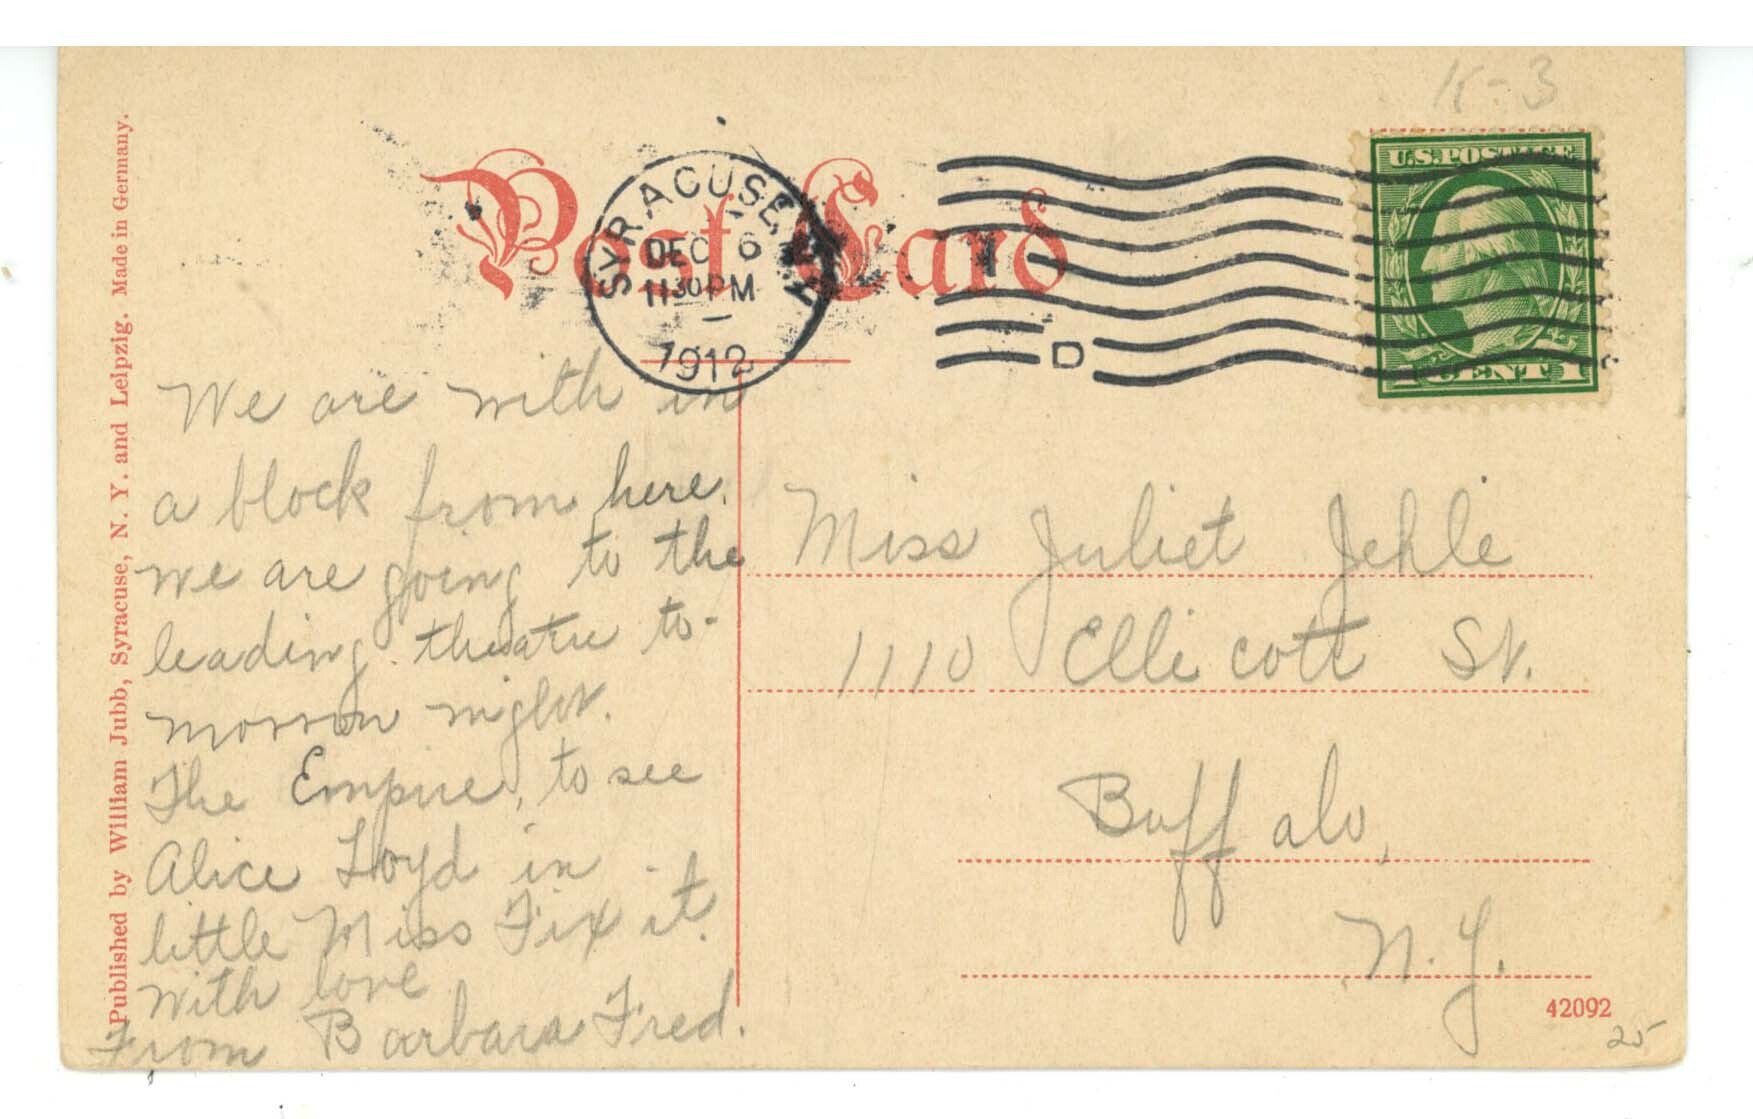 K-3
U.S. POSTAGE
1 CENT 1
Post Card
SYRACUSE, N.Y.
DEC 6
11 30 PM
1912
D
Published by William Jubb, Syracuse, N. Y. and Leipzig. Made in Germany.
We are with in
a block from here.
we are going to the
leading theatre to-
morrow night.
The Empire, to see
Alice Loyd in
little Miss Fix it.
With love
From Barbara Fred.
Miss Juliet Jehle
1110 Ellicott St.
Buffalo,
N.Y.
42092
25